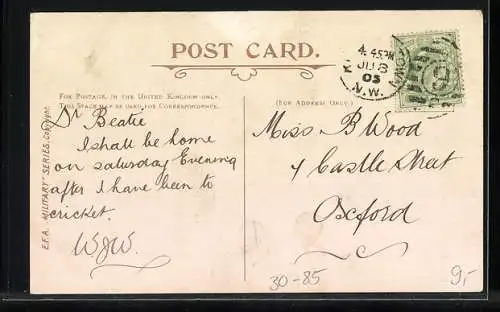 POST CARD.
FOR POSTAGE, IN THE UNITED KINGDOM ONLY,
THIS SPACE MAY BE USED FOR CORRESPONDENCE.
(FOR ADDRESS ONLY.)
E.F.A. "MILITARY" SERIES. Copyright.
4.45PM
JU 8
03
N.W.
Dr Beatie
I shall be home
on saturday Evening
after I have been to
cricket.
WJW.
Miss B Wood
7 Castle Street
Oxford
30-85
9,-